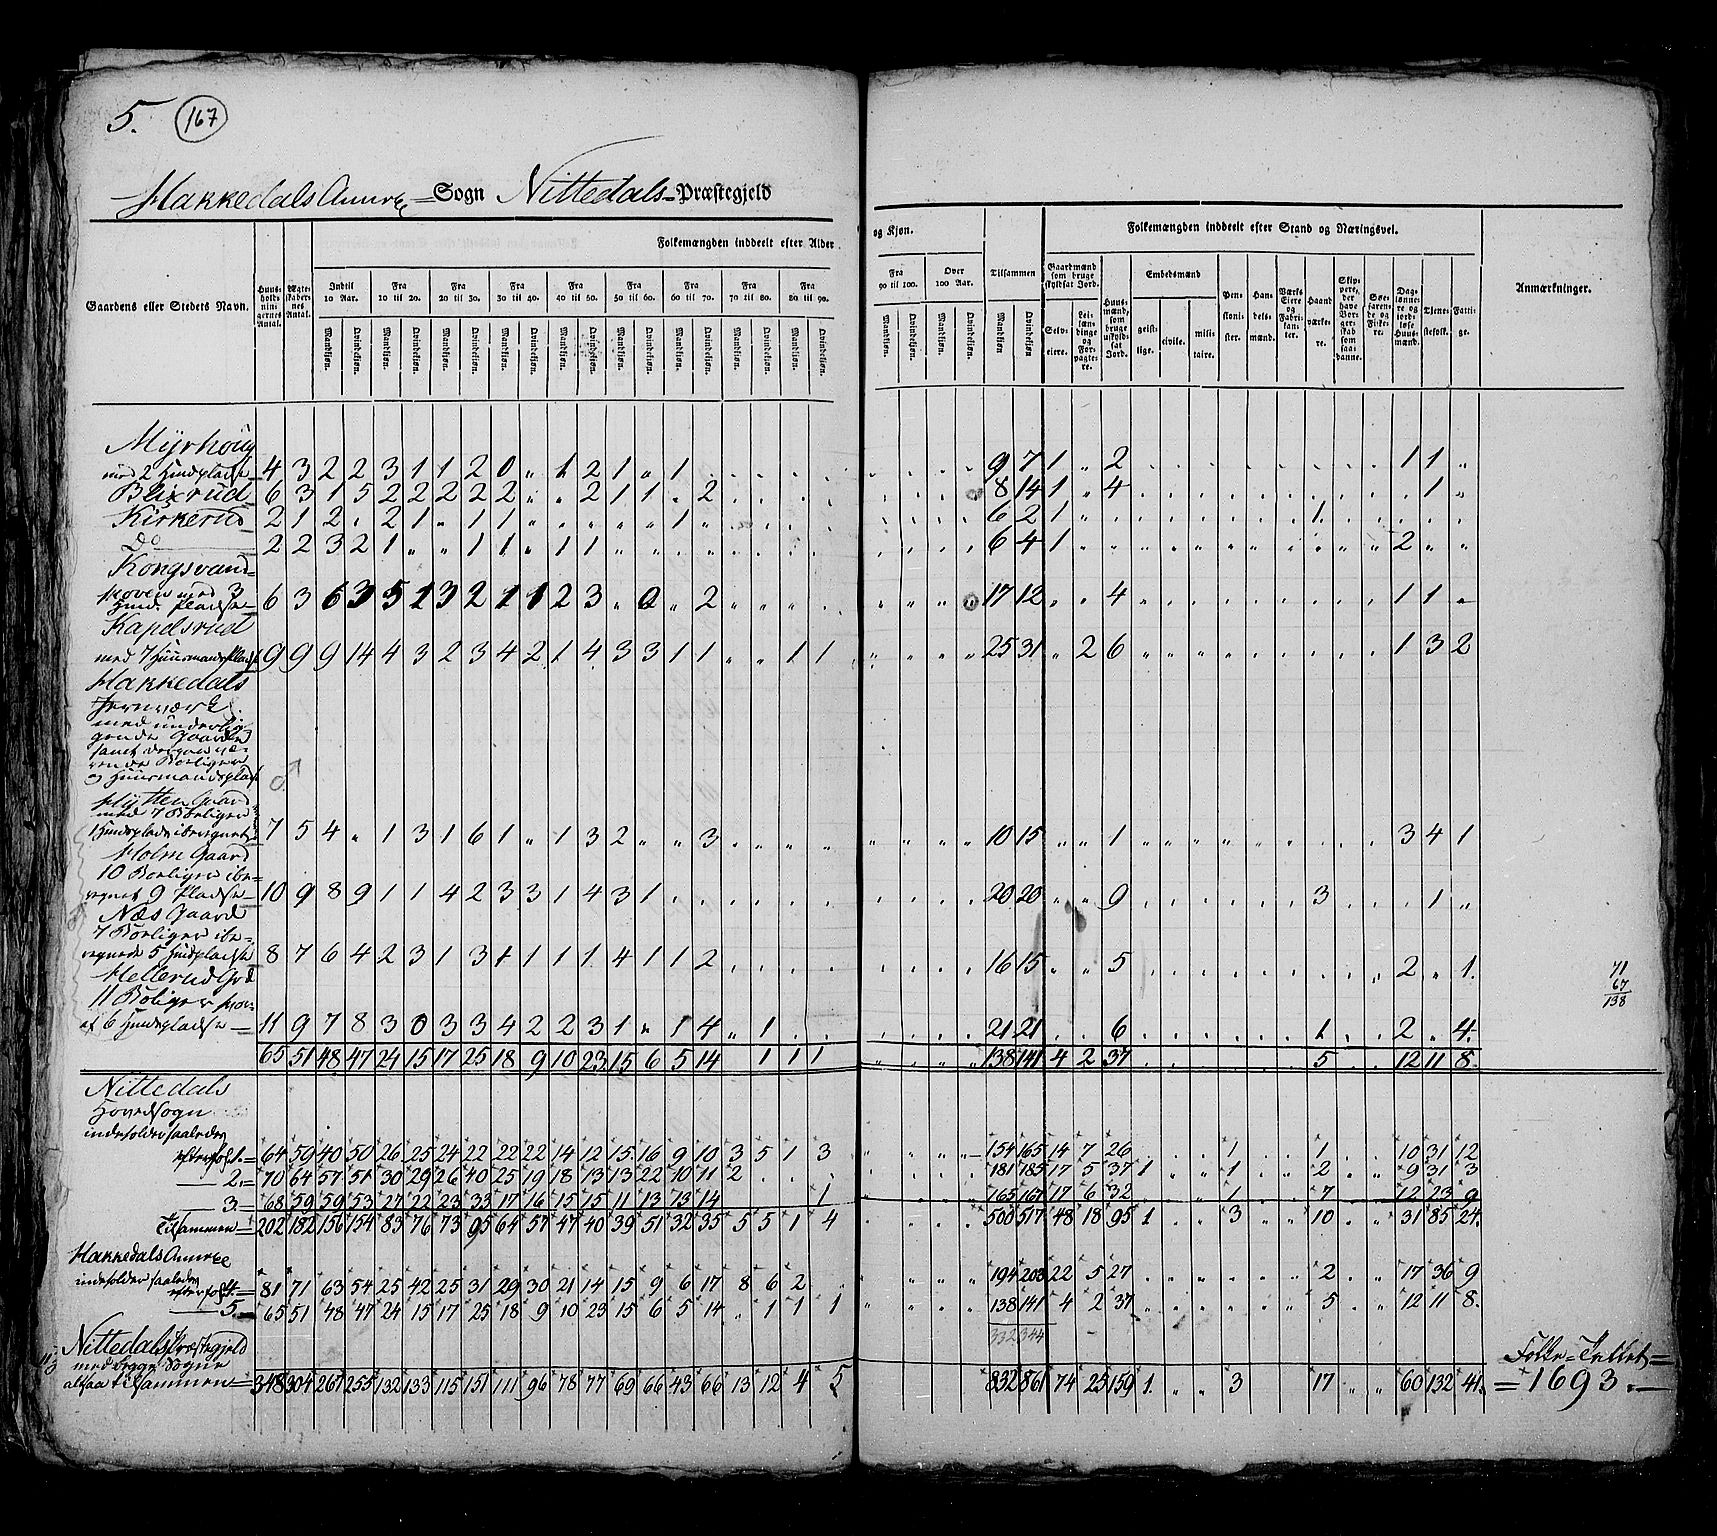 5. 167
Hakkedals Annex = Sogn Nittedals = Præstegjeld
Folkemængden inddeelt efter Alder og Kjøn. Folkemængden inddeelt efter Stand og Næringsvei.
Gaardens eller Stedets Navn. Huus-holdningernes Antal. Ægteskabernes Antal. Indtil 10 Aar. Fra 10 til 20. Fra 20 til 30. Fra 30 til 40. Fra 40 til 50. Fra 50 til 60. Fra 60 til 70. Fra 70 til 80. Fra 80 til 90. Fra 90 til 100. Over 100 Aar. Tilsammen Gaardmænd som bruge skyldsat Jord. Huusmænd, som bruge uskyldsat Jord. Embedsmænd Pensionister. Handelsmænd. Værks Eiere og Fabrikanter. Haandværkere. Skippere, der have Borgerskab som saadanne. Søefarende og Fiskere. Daglønnere og jordløse Huusmænd. Tjenestefolk. Fattige. Anmærkninger.
Mandkjøn. Qvindekjøn. Mandkjøn. Qvindekjøn. Mandkjøn. Qvindekjøn. Mandkjøn. Qvindekjøn. Mandkjøn. Qvindekjøn. Mandkjøn. Qvindekjøn. Mandkjøn. Qvindekjøn. Mandkjøn. Qvindekjøn. Mandkjøn. Qvindekjøn. Mandkjøn. Qvindekjøn. Mandkjøn. Qvindekjøn. Mandkjøn Qvindekjøn. Selveiere. Leilændinge og Forpagtere. geistlige. civile. militaire.
Myrhoug
med 2 Huuspladse 4 3 2 2 3 1 1 2 0 „ 1 2 1 „ 1 9 7 1 „ 2 1 1 „
Blixrud 6 3 1 5 2 2 2 2 2 „ „ 2 1 1 „ 2 8 14 1 „ 4 1 „
Kirkerud 2 1 2 „ 2 1 „ 1 1 „ „ „ „ „ 1 „ 6 2 1 1
Do 2 2 3 2 1 „ „ 1 1 „ 1 1 6 4 1 2 „ „
Kongsvand=
hoven med 3
Huus Pladse 6 3 6 3 5 1 3 2 1 1 2 3 „ 0 „ 2 17 12 „ „ 4 1 1 „
Kapelsrud
med 7 Huusmandspladse 9 9 9 14 4 3 2 3 4 2 1 4 3 3 1 1 „ „ 1 1 25 31 „ 2 6 1 3 2
Hakkedals
Jernværk
med underlig=
gende Gaarde
rende Boeliger
og Huusmandspladse
Hytten Gaard
med 7 Boeliger
1 Huusplads iberegnet 7 5 4 „ 1 3 1 6 1 „ 1 3 2 „ „ 3 10 15 „ „ 1 3 4 1
Holm Gaard
10 Boeliger ibe=
regnet 9 Pladse 10 9 8 9 1 1 4 2 3 3 1 4 3 1 20 20 „ „ 9 3 1 „
Næs Gaard
7 Boeliger ibe=
regnede 5 Huuspladse 8 7 6 4 2 3 1 3 1 1 1 1 4 1 1 2 16 15 „ „ 5 2 „ 1.
Hellerud Grd
11 Boliger hvor=
af 6 Huuspladse 11 9 7 8 3 0 3 3 4 2 2 3 1 „ 1 4 „ 1 21 21 6 1 2 „ 4.
71
67
138
65 51 48 47 24 15 17 25 18 9 10 23 15 6 5 14 1 1 1 138 141 4 2 37 5 12 11 8.
Nittedals
Hovedsogn
indeholder saaledes
efter fol. 1. = 64 59 40 50 26 25 24 22 22 22 14 12 15 16 9 10 3 5 1 3 154 165 14 7 26 1 1 10 31 12
2. = 70 64 57 51 30 29 26 40 25 19 18 13 13 22 10 11 2 181 185 17 5 37 1 1 2 9 31 3
3. = 68 59 59 53 27 22 23 33 17 16 15 15 11 13 13 14 1 165 167 17 6 32 1 7 12 23 9
Tilsammen = 202 182 156 154 83 76 73 95 64 57 47 40 39 51 32 35 5 5 1 4 500 517 48 18 95 1 3 10 31 85 24.
Hakkedals Annex
indeholder saaledes
efter fol. 4. = 81 71 63 54 25 42 25 31 29 30 21 14 15 9 6 17 8 6 2 194 203 22 5 27 2 17 36 9
5. = 65 51 48 47 24 15 17 25 18 9 10 23 15 6 5 14 „ 1 1 1 138 141 4 2 37 5 12 11 8.
332 344
Nittedals Præstegjeld
med begge Sogne
altsaa tilsammen = 348 304 267 255 132 133 115 151 111 96 78 77 69 66 43 66 13 12 4 5 832 861 74 25 159 1. 3 17 60 132 41.
Folke=Tallet =
= 1693.